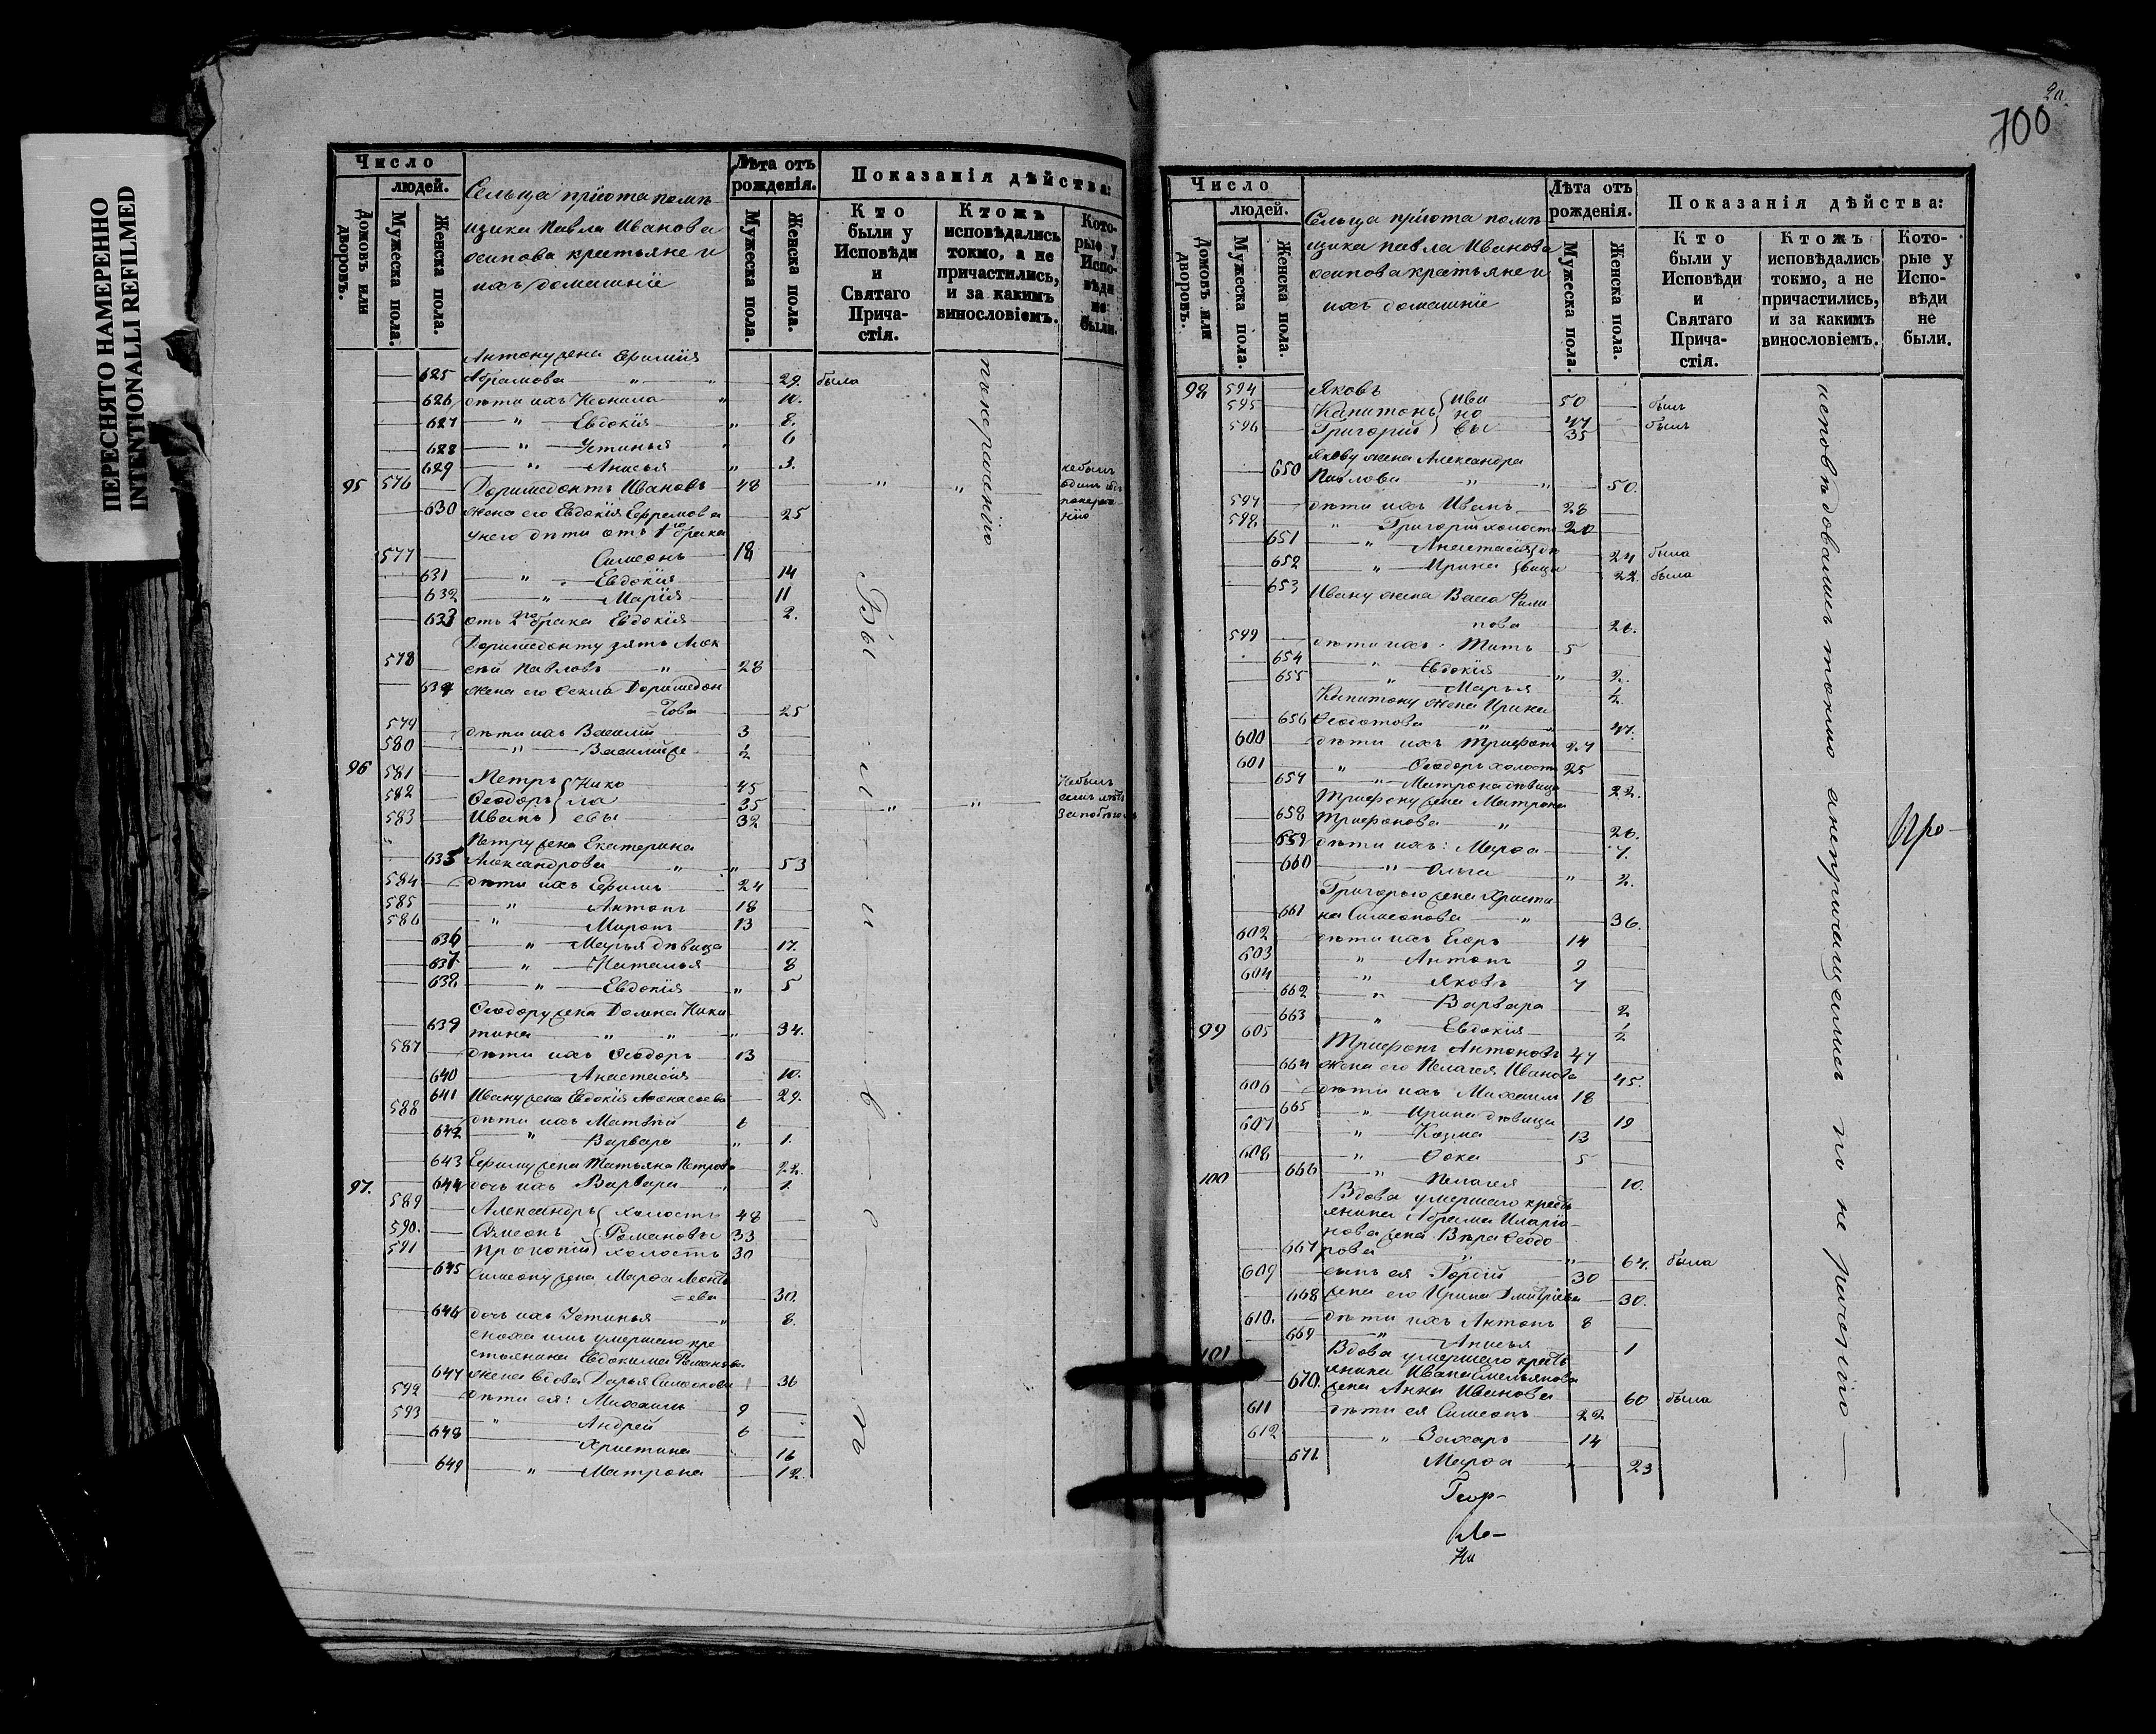 ПЕРЕСНЯТО НАМЕРЕННО
INTENTIONALLI REFILMED
Число
людей.
Домовъ или дворовъ.
Мужеска пола.
Женска пола.
Сельца пріюта помѣ
щика Павла Иванова
осипова крестьяне и
ихъ домашніе
Лѣта отъ
рожденія.
Мужеска пола.
Женска пола.
Показанія дѣйства:
Кто
были у
Исповѣди
и
Святаго
Прича-
стія.
Ктожъ
исповѣдались
токмо, а не
причастились,
и за какимъ
винословіемъ.
Кото-
рые у
Испо-
вѣди
не
были.
Антону жена Ефимія
625 Абрамова " " 29. была
626 дѣти ихъ Неонила " 10.
627 " Евдокія " 8.
628 " Устинья " 6
629 " Анисья " 3.
95 576 Доримедонтъ Ивановъ 48 " "
630 жена его Евдокія Ефремова 25
у него дѣти отъ 1го брака
577 Симеонъ 18
631 " Евдокія 14
632 " Марія 11
633 отъ 2го брака Евдокія 2.
Доримедонту зять Алек
578 сѣй Павловъ " 28
634 жена его Фекла Доримедон
=това 25
579 дѣти ихъ Василій 3
580 " Василій же ½
96 581 Петръ Нико 45
582 Ѳеодоръ ла 35 " "
583 Иванъ евы 32
" Петру жена Екатерина
635 Александрова " " 53
584 дѣти ихъ Ефимъ 24
585 " Антонъ 18
586 " Миронъ 13
636 " Марья дѣвица 17.
637 " Наталья 8
638 " Евдокія " 5
Ѳеодору жена Домна Ники
639 тина " " " 34.
587 дѣти ихъ Ѳеодоръ 13
640 Анастасія 10.
641 Ивану жена Евдокія Аѳонасьева 29.
588 дѣти ихъ Матвѣй 6
642 " Варвара " 1.
643 Ефиму жена Татьяна Петрова 22.
644 дочь ихъ Варвара " 1.
97. 589 Александръ холостъ 48
590. Симеонъ Романовы 33
591 Прокопій холостъ 30
645 Симеону жена Марѳа Леонть
=ева 30.
646 дочь ихъ Устинья " 8.
сноха имъ умершаго кре
стьянина Евдокима Романова
647 жена вдова Дарья Симеонова 36
592 дѣти ея: Михаилъ 9
593 " Андрей 6
648 Христина 16
649 " Матрона 12.
700
Число
людей.
Домовъ или дворовъ.
Мужеска пола.
Женска пола.
Сельца пріюта помѣ
щика павла Иванова
осипова крестьяне и
ихъ домашніе
Лѣта отъ
рожденія.
Мужеска пола.
Женска пола.
Показанія дѣйства:
Кто
были у
Исповѣди
и
Святаго
Прича-
стія.
Ктожъ
исповѣдались
токмо, а не
причастились,
и за какимъ
винословіемъ.
Кото-
рые у
Испо-
вѣди
не
были.
98 594 Яковъ Ива 50 былъ
595 Капитонъ но 47 былъ
596 Григорій вы 35
Якову жена Александра
650 Павлова " " 50.
597 дѣти ихъ Иванъ 28
598 " Григорій холостъ 20
651 " Анастасія дѣ 24 была
652 " Ирина вицы 22. была
653 Ивану жена Васса Фили
пова 26.
599 дѣти ихъ: Титъ 5
654 " Евдокія " 2.
655 " Марья ½
Капитону жена Ирина
656 Ѳеодотова " " 47.
600 дѣти ихъ Трифонъ 27
601 " Ѳеодоръ холостъ 25
657 " Матрона дѣвица 22.
Трифону жена Матрона
658 Трифонова " 26.
659 дѣти ихъ: Марѳа 7.
660 " Ольга " 2.
Григорью жена Христи
661 на Симеонова " 36.
602 дѣти ихъ Егоръ 14
603 " Антонъ 9
604 " Яковъ 7
662 " Варвара 2
663 " Евдокія ½
99 605 Трифонъ Антоновъ 47
664 жена его Пелагея Иванова 45.
606 дѣти ихъ Михаилъ 18
665 " Ирина дѣвица 19
607 " Козма 13
608 " Ѳока 5
666 " Пелагея 10.
100 Вдова умершаго кресть
янина Абрама Иларіо-
нова жена Вѣра Ѳеодо
667 рова " " 64. была
609 сынъ ея Гордій 30
668 жена его Ирина Дмитріева 30.
610. дѣти ихъ Антонъ 8
669 " Анисья 1
101 Вдова умершаго кресть
янина Ивана Емельянова
670. жена Анна Иванова 60 была
611 дѣти ея Симеонъ 22
612 " Захаръ 14
671 Марѳа " 23
исповѣдовались токмо а непричащались по не рачѣнію
Геор-
Про-